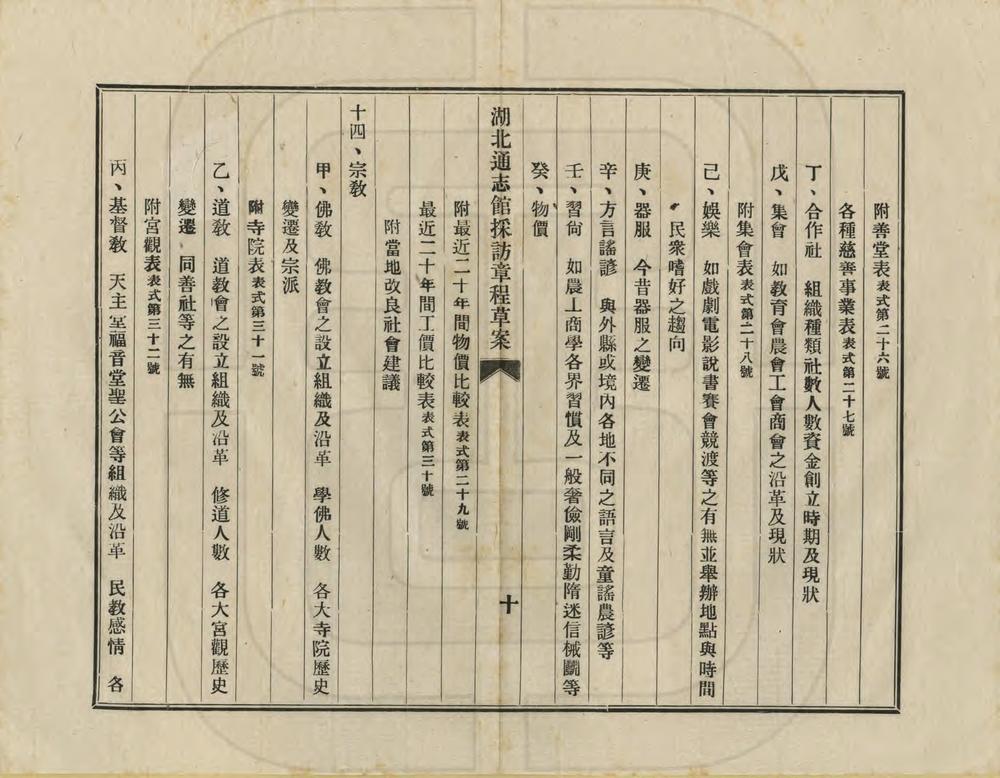 附善堂表表式第二十六號
各種慈善事業表表式第二十七號
丁、合作社　組織種類社數人數資金創立時期及現狀
戊、集會　如教育會農會工會商會之沿革及現狀
附集會表表式第二十八號
己、娛樂　如戲劇電影說書賽會競渡等之有無並舉辦地點與時間
民衆嗜好之趨向
庚、器服　今昔器服之變遷
辛、方言謠諺　與外縣或境內各地不同之語言及童謠農諺等
壬、習尙　如農工商學各界習慣及一般奢儉剛柔勤隋迷信械鬭等
癸、物價
湖北通志館採訪章程草案　十
附最近二十年間物價比較表表式第二十九號
最近二十年間工價比較表表式第三十號
附當地改良社會建議
十四、宗敎
甲、佛敎　佛敎會之設立組織及沿革　學佛人數　各大寺院歷史
變遷及宗派
附寺院表表式第三十一號
乙、道敎　道敎會之設立組織及沿革　修道人數　各大宮觀歷史
變遷　同善社等之有無
附宮觀表表式第三十二號
丙、基督敎　天主堂福音堂聖公會等組織及沿革　民敎感情　各